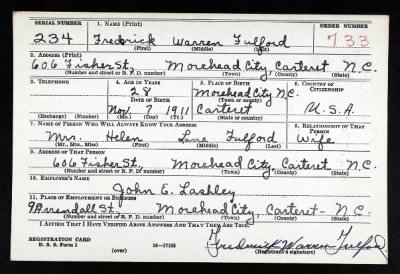 SERIAL NUMBER 1. NAME (Print) ORDER NUMBER
234 Fredrick Warren Fulford 733
(First) (Middle) (Last)
2. ADDRESS (Print)
606 Fisher St. Morehead City Carteret N.C.
(Number and street or R. F. D. number) (Town) (County) (State)
3. TELEPHONE 4. AGE IN YEARS 5. PLACE OF BIRTH 6. COUNTRY OF CITIZENSHIP
28 Morehead City N.C.
DATE OF BIRTH (Town or county)
Nov 7 1911 Carteret U.S.A.
(Exchange) (Number) (Mo.) (Day) (Yr.) (State or country)
7. NAME OF PERSON WHO WILL ALWAYS KNOW YOUR ADDRESS 8. RELATIONSHIP OF THAT PERSON
Mrs. Helen Lane Fulford Wife
(Mr., Mrs., Miss) (First) (Middle) (Last)
9. ADDRESS OF THAT PERSON
606 Fisher St. Morehead City, Carteret N.C.
(Number and street or R. F. D. number) (Town) (County) (State)
10. EMPLOYER'S NAME
John E. Lashley
11. PLACE OF EMPLOYMENT OR BUSINESS
Arendall St. Morehead City, Carteret - N.C.
(Number and street or R. F. D. number) (Town) (County) (State)
I AFFIRM THAT I HAVE VERIFIED ABOVE ANSWERS AND THAT THEY ARE TRUE.
REGISTRATION CARD
D. S. S. Form 1 (over) 16—17105 Fredrick Warren Fulford
(Registrant's signature)